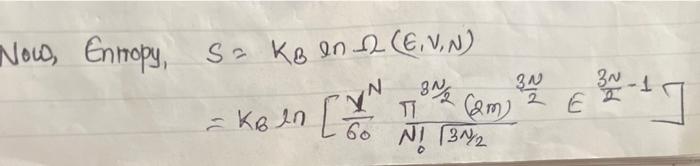 Now, Entropy, S = K_B ln Ω (E, V, N)
= K_B ln [ V^N/60 π^{3N/2} (2m)^{3N/2} / N! Γ3N/2 E^{3N/2 - 1} ]